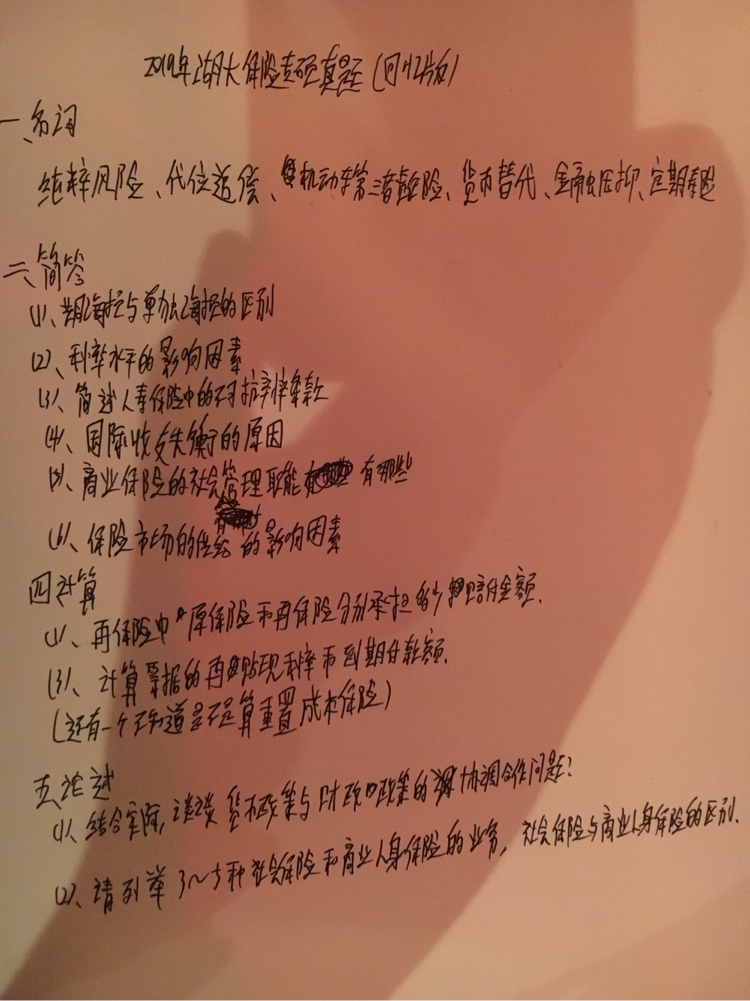 2019年湖大保险专硕真题(回忆版)
一、名词
纯粹风险、代位追偿、机动车第三者责任险、货币替代、金融压抑、定期寿险
二、简答
(1)、共同海损与单独海损的区别
(2)、利率水平的影响因素
(3)、简述人寿保险中的不可抗辩条款
(4)、国际收支失衡的原因
(5)、商业保险的社会管理职能有哪些
(6)、保险市场的供给的影响因素
四计算
(1)、再保险中原保险和再保险分别承担多少赔付金额.
(3)、计算票据的再贴现利率和到期付款额.
(还有一个不知道是不是算重置成本保险)
五论述
(1)、结合实际,谈谈货币政策与财政政策的协调合作问题?
(2)、请列举3~5种社会保险和商业人身保险的业务,社会保险与商业人身保险的区别.